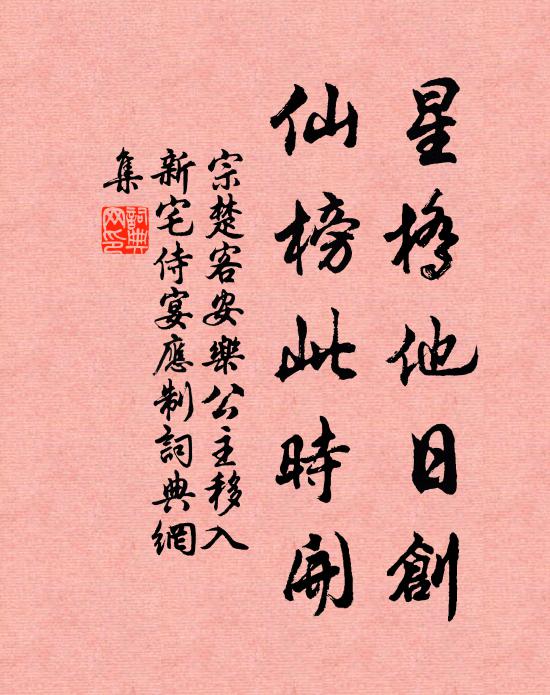 星橋他日創
仙榜此時開
宗楚客安樂公主移入
新宅侍宴應制詞典網
集
詞典網印